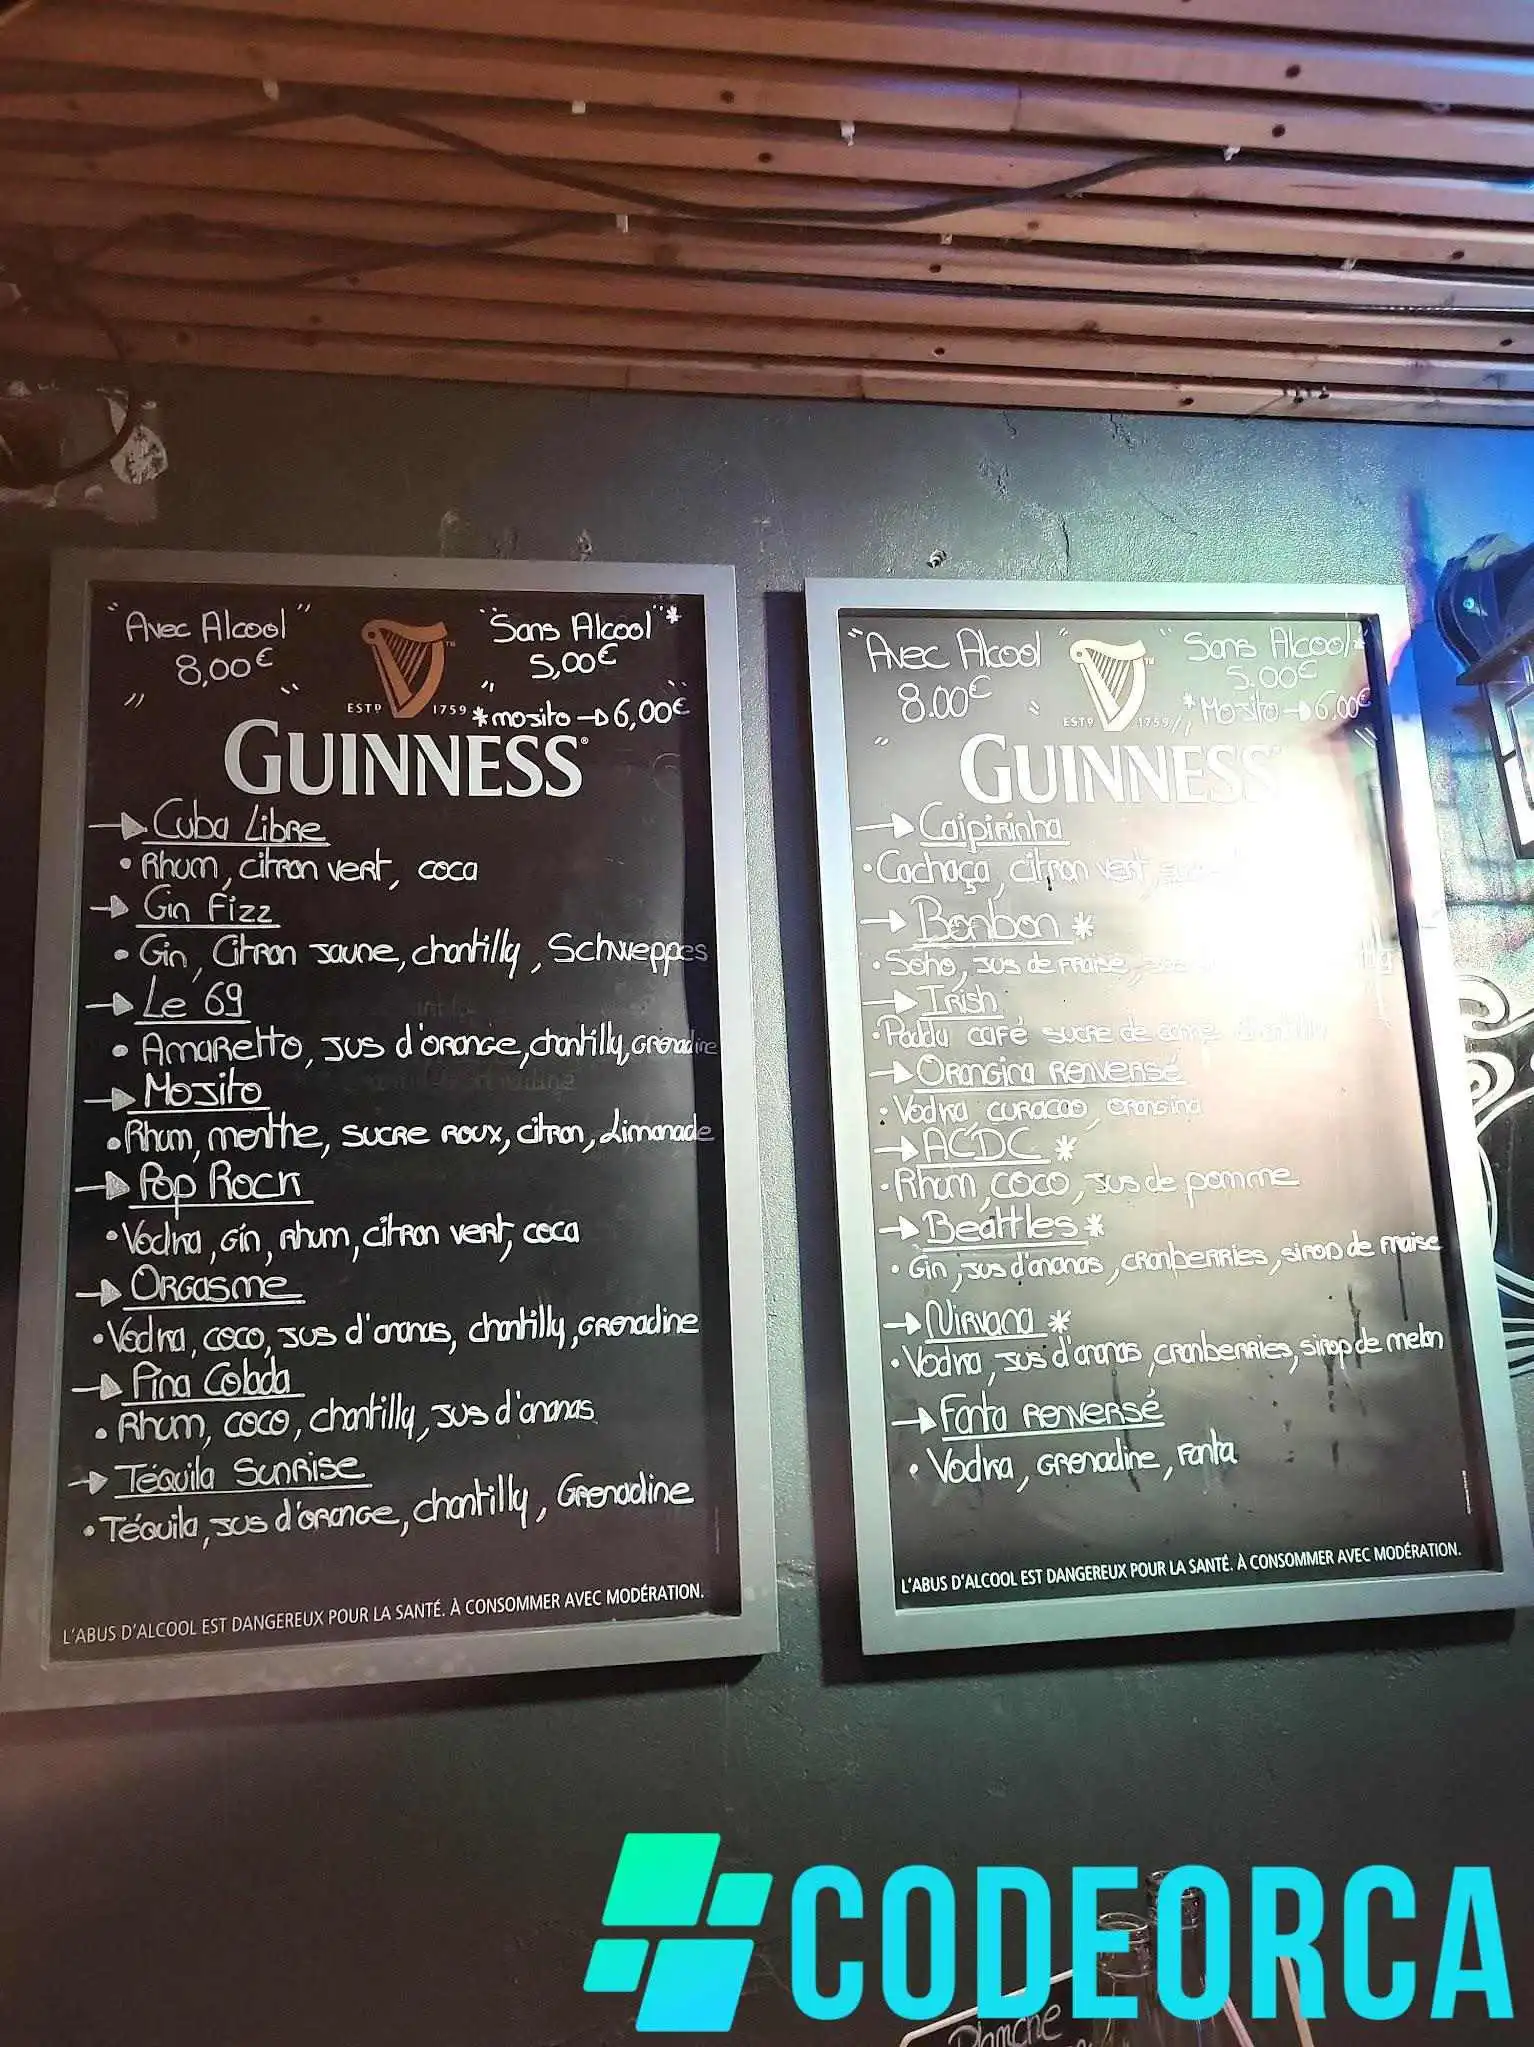 "Avec Alcool"
8,00€
"Sans Alcool"*
5,00€
ESTD 1759
*Mojito → 6,00€
GUINNESS
→ Cuba Libre
• Rhum, citron vert, coca
→ Gin Fizz
• Gin, Citron Jaune, chantilly, Schweppes
→ Le 69
• Amaretto, Jus d'orange, chantilly, Grenadine
→ Mojito
• Rhum, menthe, sucre roux, citron, Limonade
→ Pop Rock
• Vodka, Gin, rhum, citron vert, coca
→ Orgasme
• Vodka, coco, Jus d'ananas, chantilly, Grenadine
→ Pina Colada
• Rhum, coco, chantilly, Jus d'ananas
→ Téquila Sunrise
• Téquila, Jus d'orange, chantilly, Grenadine
L'ABUS D'ALCOOL EST DANGEREUX POUR LA SANTÉ. À CONSOMMER AVEC MODÉRATION.
"Avec Alcool"
8.00€
"Sans Alcool*
5.00€
ESTD 1759
*Mojito → 6,00€
GUINNESS
→ Caipirinha
• Cachaça, citron vert,
→ Bonbon *
• Soho, Jus de fraise,
→ Irish
• Paddy café sucre de canne
→ Orangina renversé
• Vodka, curacao, orangina
→ ACDC *
• Rhum, coco, Jus de pomme
→ Beattles *
• Gin, Jus d'ananas, cranberries, sirop de fraise
→ Nirvana *
• Vodka, Jus d'ananas, cranberries, sirop de melon
→ Fanta renversé
• Vodka, Grenadine, Fanta
L'ABUS D'ALCOOL EST DANGEREUX POUR LA SANTÉ. À CONSOMMER AVEC MODÉRATION.
CODEORCA
Planche